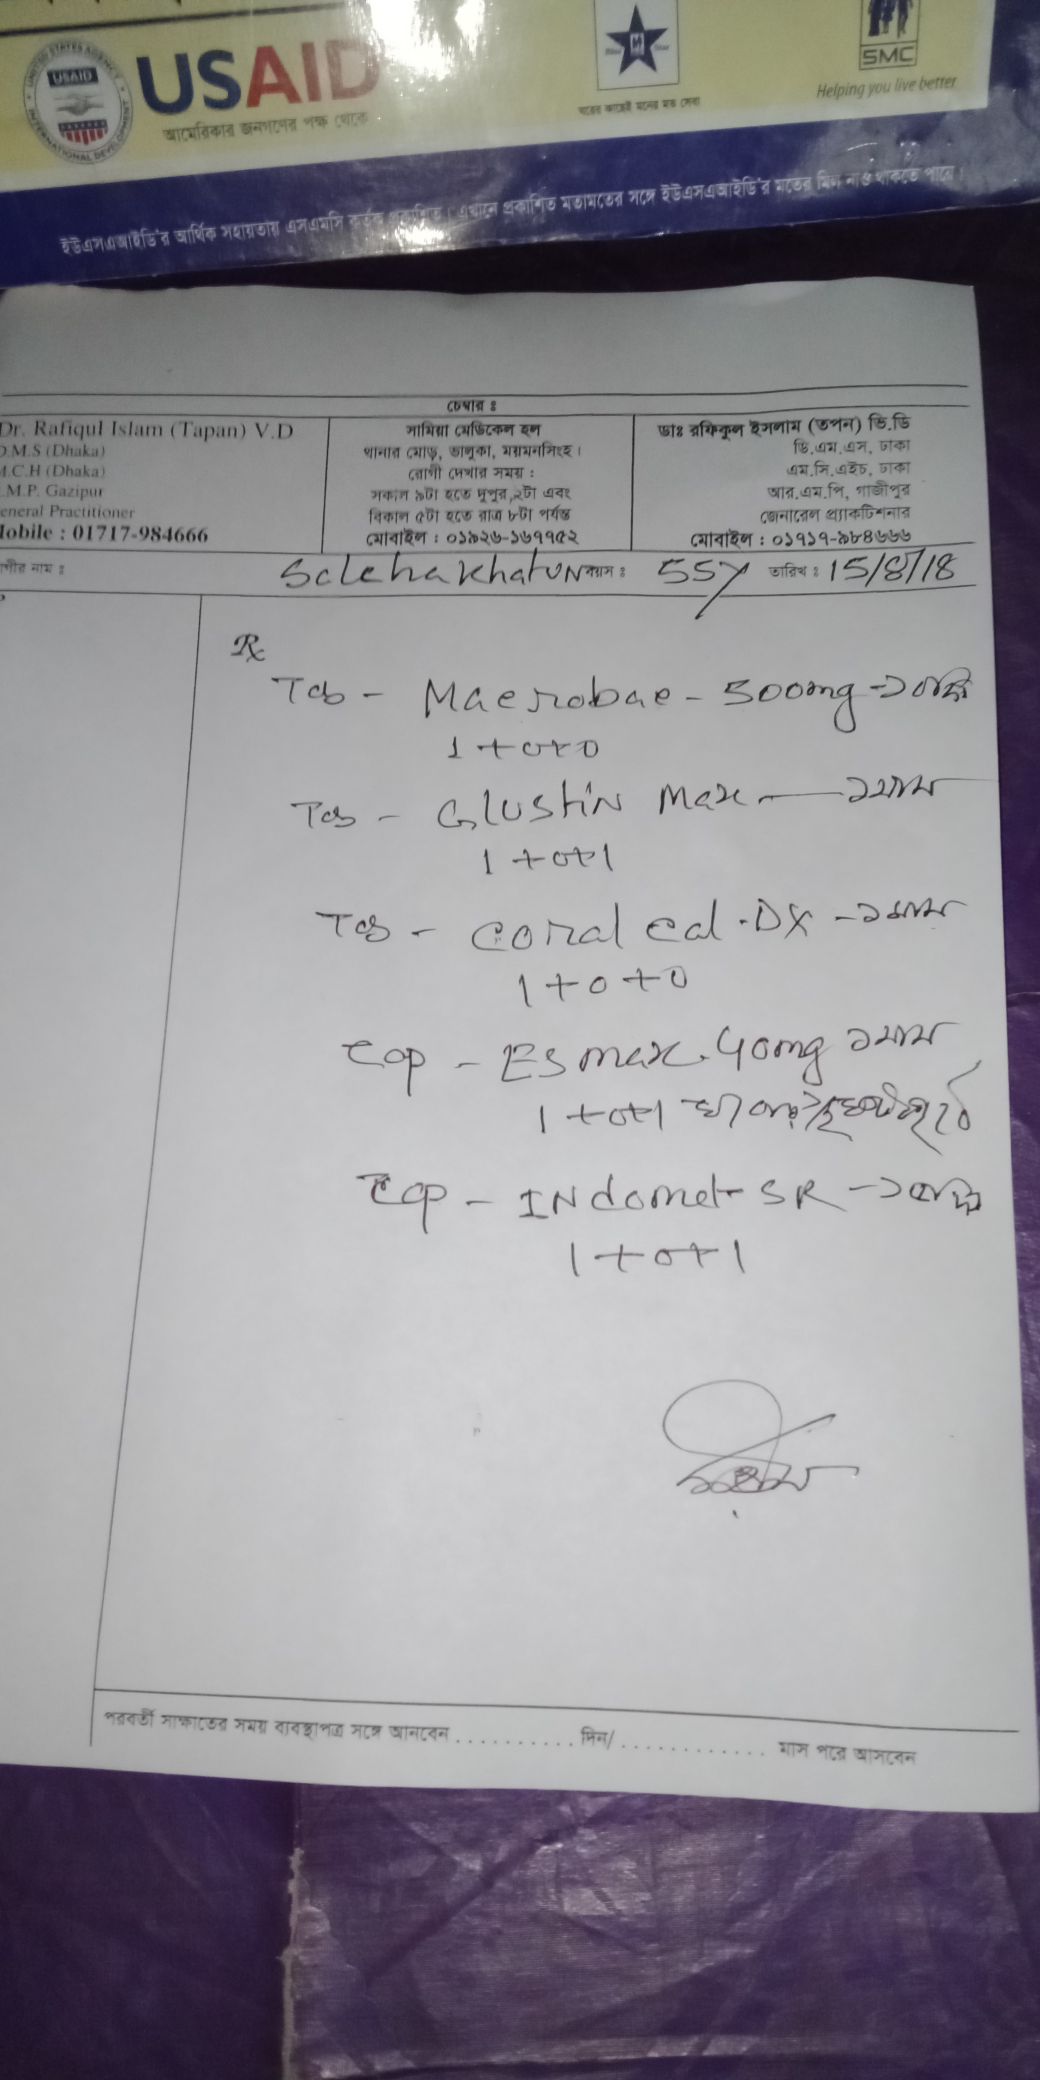 UNITED STATES AGENCY
USAID
INTERNATIONAL DEVELOPMENT
USAID
আমেরিকার জনগণের পক্ষ থেকে
SMC
Helping you live better
ইউএসএআইডি'র আর্থিক সহায়তায় এসএমসি কর্তৃক প্রকাশিত। এখানে প্রকাশিত মতামতের সঙ্গে ইউএসএআইডি'র মতের মিল নাও থাকতে পারে।
চেম্বার ঃ
Dr. Rafiqul Islam (Tapan) V.D
D.M.S (Dhaka)
M.C.H (Dhaka)
.M.P. Gazipur
eneral Practitioner
Mobile : 01717-984666
সামিয়া মেডিকেল হল
থানার মোড়, ভালুকা, ময়মনসিংহ।
রোগী দেখার সময় :
সকাল ৯টা হতে দুপুর ২টা এবং
বিকাল ৫টা হতে রাত্র ৮টা পর্যন্ত
মোবাইল : ০১৯২৬-১৬৭৭৫২
ডাঃ রফিকুল ইসলাম (তপন) ভি.ডি
ডি.এম.এস, ঢাকা
এম.সি.এইচ, ঢাকা
আর.এম.পি, গাজীপুর
জেনারেল প্র্যাকটিশনার
মোবাইল : ০১৭১৭-৯৮৪৬৬৬
গীর নাম ঃ Saleha Khatun বয়স ঃ 55y তারিখ ঃ 15/8/18
Rx
Tab - Macrobac - 500mg -
1+0+0
Tab - Glustin Max — ১মাস
1+0+1
Tab - Coral cal-DX - ১মাস
1+0+0
Cap - Esmax 40mg ১মাস
1+0+1
Cap - INdomet SR -
1+0+1
পরবর্তী সাক্ষাতের সময় ব্যবস্থাপত্র সঙ্গে আনবেন . . . . . . . . . . . দিন/ . . . . . . . . . . . . . মাস পরে আসবেন